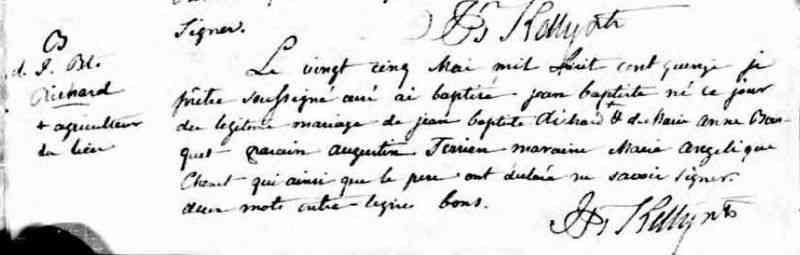 signer.
Js Kelly ptr
B
d. J. Bt.
Richard
+ agriculteur
du lieu
Le vingt cinq Mai mil huit cent quinze je
prêtre soussigné curé ai baptisé jean baptiste né ce jour
du legitime mariage de jean baptiste Richard + & de Marie Anne Bou-
quet parain Augustin Terrien maraine Marie Angelique
Chenet qui ainsi que le pere ont declaré ne savoir signer.
deux mots entre lignes bons.
Js Kelly ptr